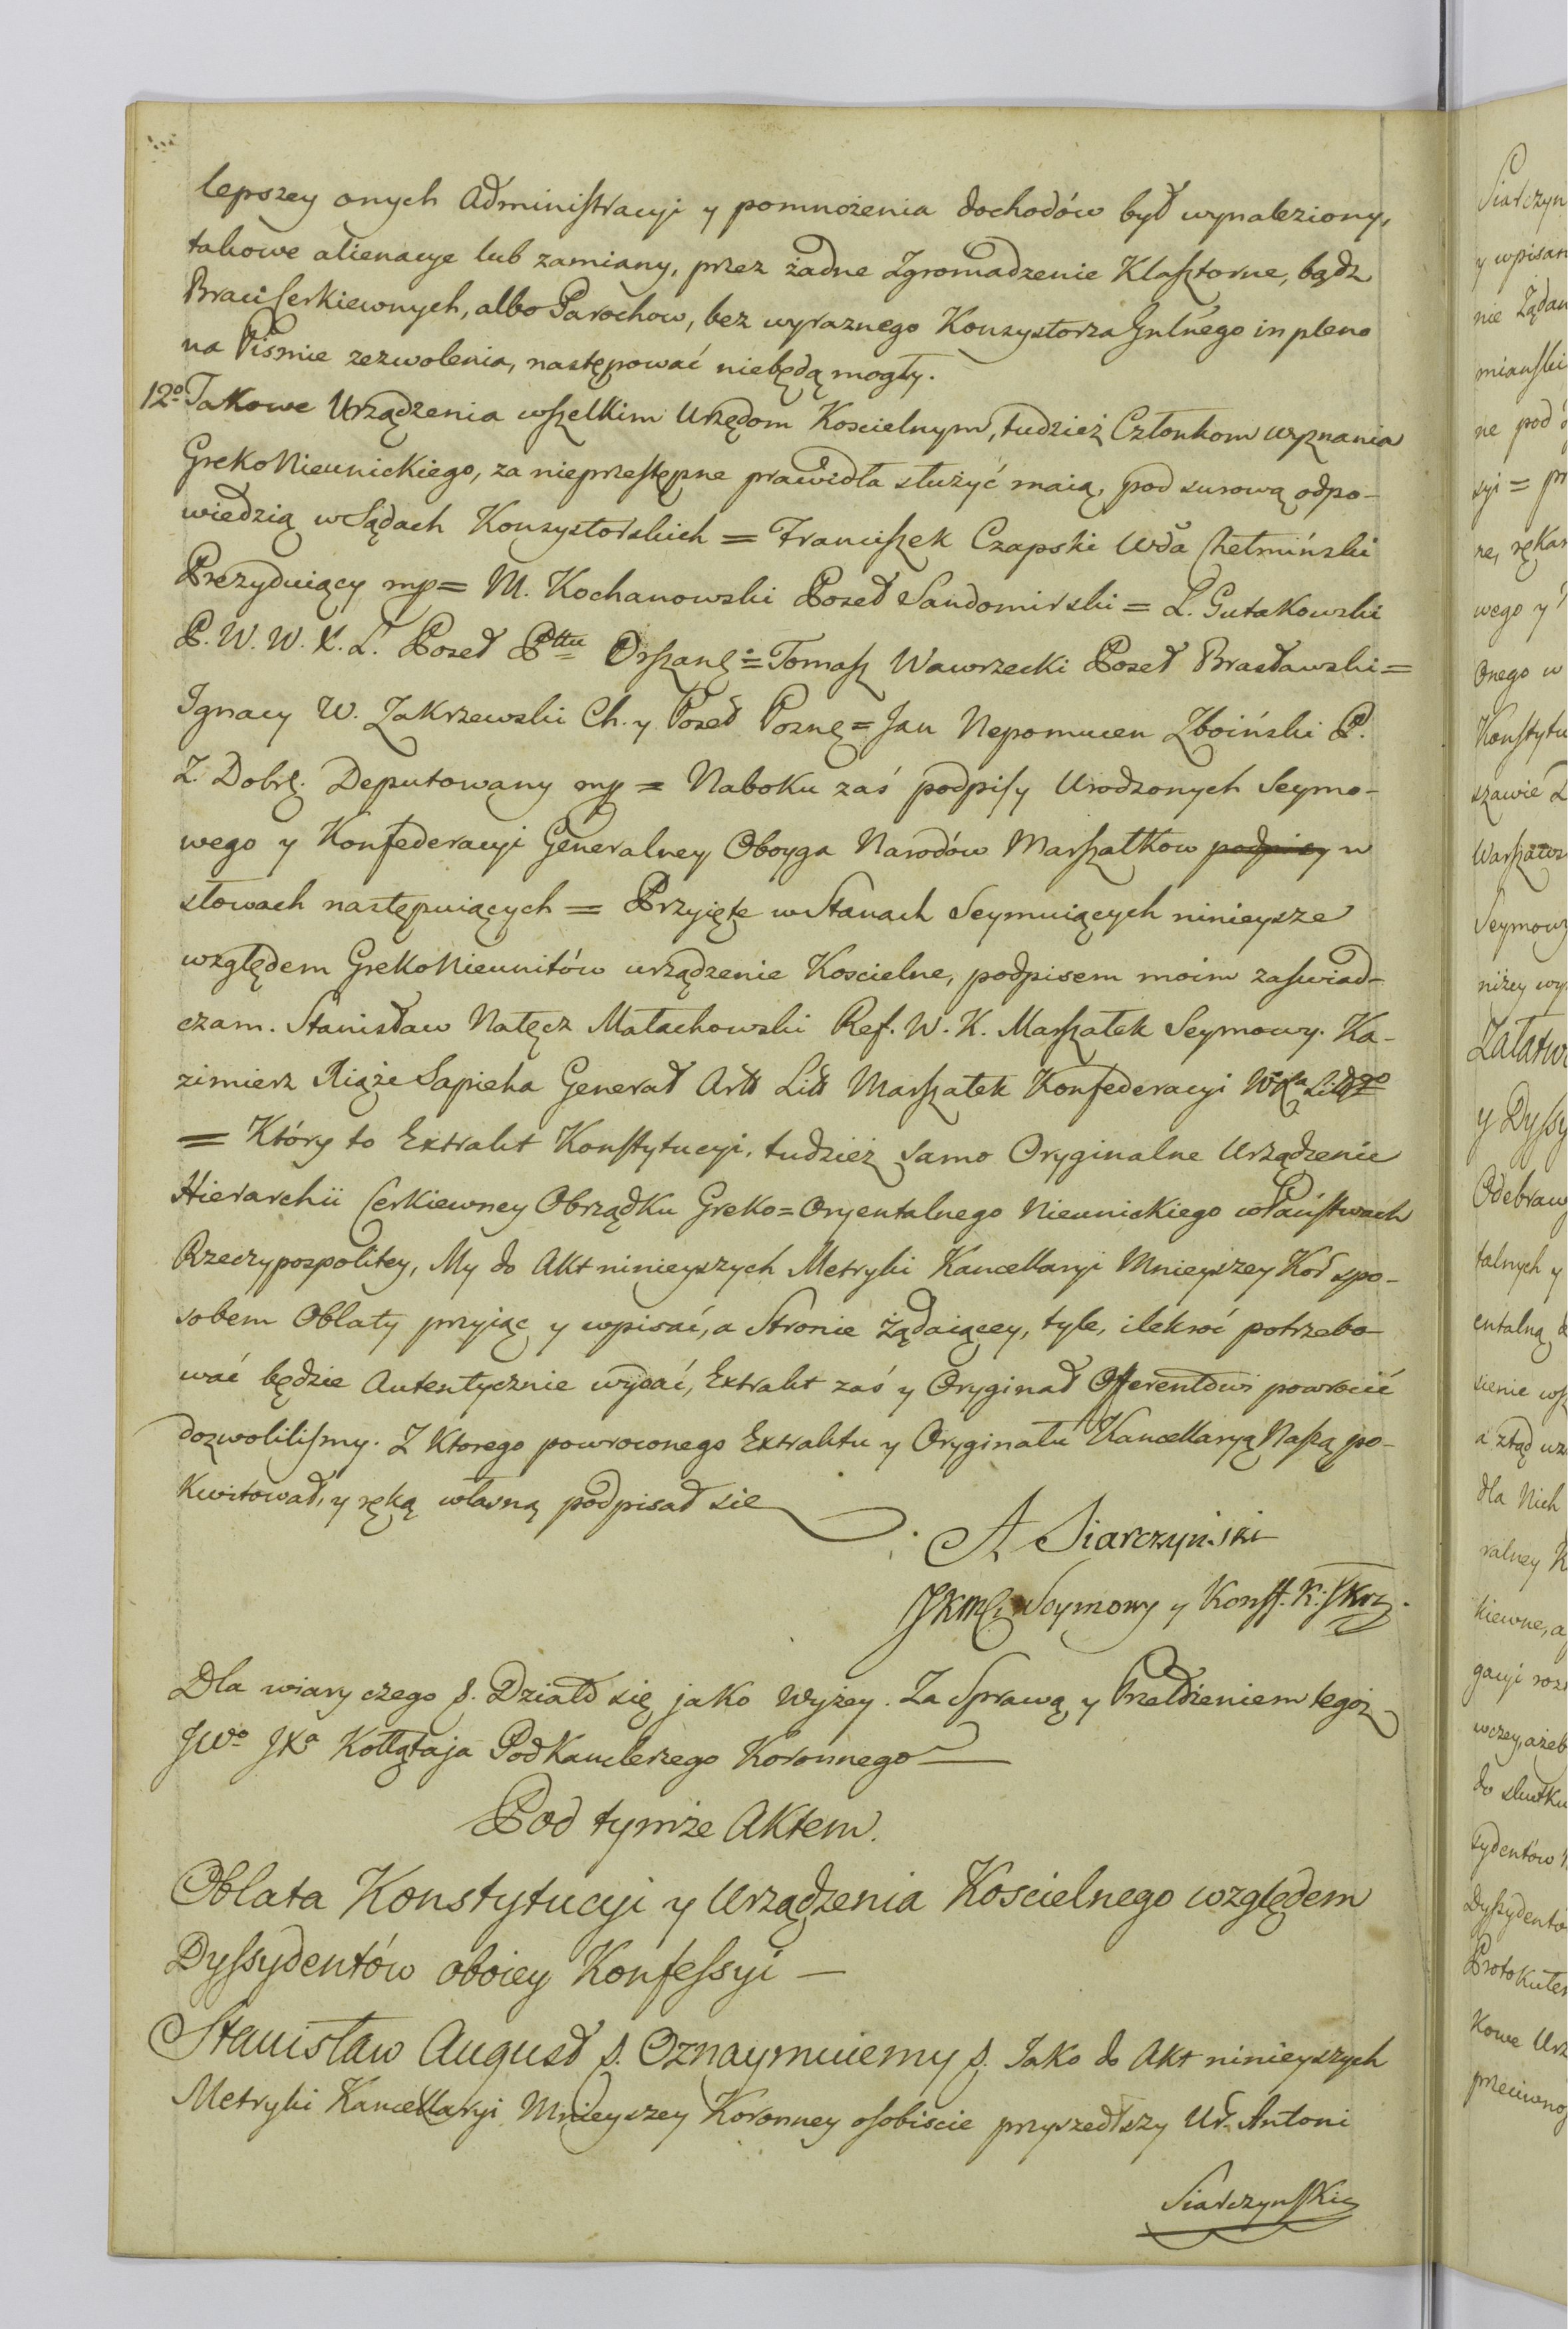 lepszey onych Administracyi y pomnożenia dochodów był wynaleziony,
takowe alienacye lub zamiany, przez żadne Zgromadzenie Klasztorne, bądz
Braci Cerkiewnych, albo Parochow, bez wyraznego Konsystorza Gnlnego in pleno
na Pismie zezwolenia, następować niebędą mogły.
12o Takowe Urządzenia wszelkim Urzędom Koscielnym, tudzież Członkom wyznania
Greko Nieunickiego, za nieprzestępne prawidła służyć maią, pod surową odpo-
wiedzią w Sądach Konsystorskich = Franciszek Czapski Wda Chełmiński
Prezyduiący mp = M. Kochanowski Poseł Sandomirski = L. Gutakowski
P. W. W. X. L. Poseł Pttu Orszań: = Tomasz Wawrzecki Poseł Brasławski =
Ignacy W. Zakrzewski Ch. y Poseł Pozń = Jan Nepomucen Zboiński P.
Z. Dobrz. Deputowany mp = Naboku zaś podpisy Urodzonych Seymo-
wego y Konfederacyi Generalney Oboyga Narodów Marszałkow podpisy w
słowach następuiących = Przyięte w Stanach Seymuiących ninieysze
względem Greko Nieunitów urządzenie Koscielne, podpisem moim zaswiad-
czam. Stanisław Nałęcz Małachowski Ref. W. K. Marszałek Seymowy. Ka-
zimierz Xiąże Sapieha Generał Artt Litt Marszałek Konfederacyi
= Który to Extrakt Konstytucyi, tudzież samo Oryginalne Urządzenie
Hierarchii Cerkiewney Obrządku Greko = Oryentalnego Nieunickiego w Państwach
Rzeczypospolitey, My do Akt ninieyszych Metryki Kancellaryi Mnieyszey Kor spo-
sobem Oblaty przyiąc y wpisać, a Stronie żądaiącey, tyle, ilékroć potrzebo-
wać będzie Autentycznie wydać, Extrakt zaś y Oryginał Offerentowi powrócić
dozwolilismy. Z Ktorego powroconego Extraktu y Oryginału Kancellaryą Naszą po-
kwitował, y ręką własną podpisał sie
A Siarczyński
JKMci Seymowy y Konff. K. Skrz.
Dla wiary czego p. Działo się jako Wyżey. Za Sprawą y Przełożeniem tegoż
JWo JXa Kołłątaja PodKanclerzego Koronnego
Pod tymże Aktem.
Oblata Konstytucyi y Urządzenia Koscielnego względem
Dyssydentów oboiey Konfessyi —
Stanisław August p. Oznaymuiemy p. Iako do Akt ninieyszych
Metryki Kancellaryi Mnieyszey Koronney osobiscie przyszedłszy Ur. Antoni
Siarczynski
Siarczyn
y wpisan
nie Żądan
ne pod
syi = pr
re, rękar
wego y
Onego w
Konstytu
szawie
Warszaws
Seymowy
niżey wy
Załatw
y Dyssy
Odebraw
talnych y
entalną
sienie wsz
a ztąd
dla Nich
ralney K
kiewne, a
gacyi roz
wczey, ażeb
do skutku
sydentów
Dyssydentó
Protokułe
Kowe Urz
przeciwnoś